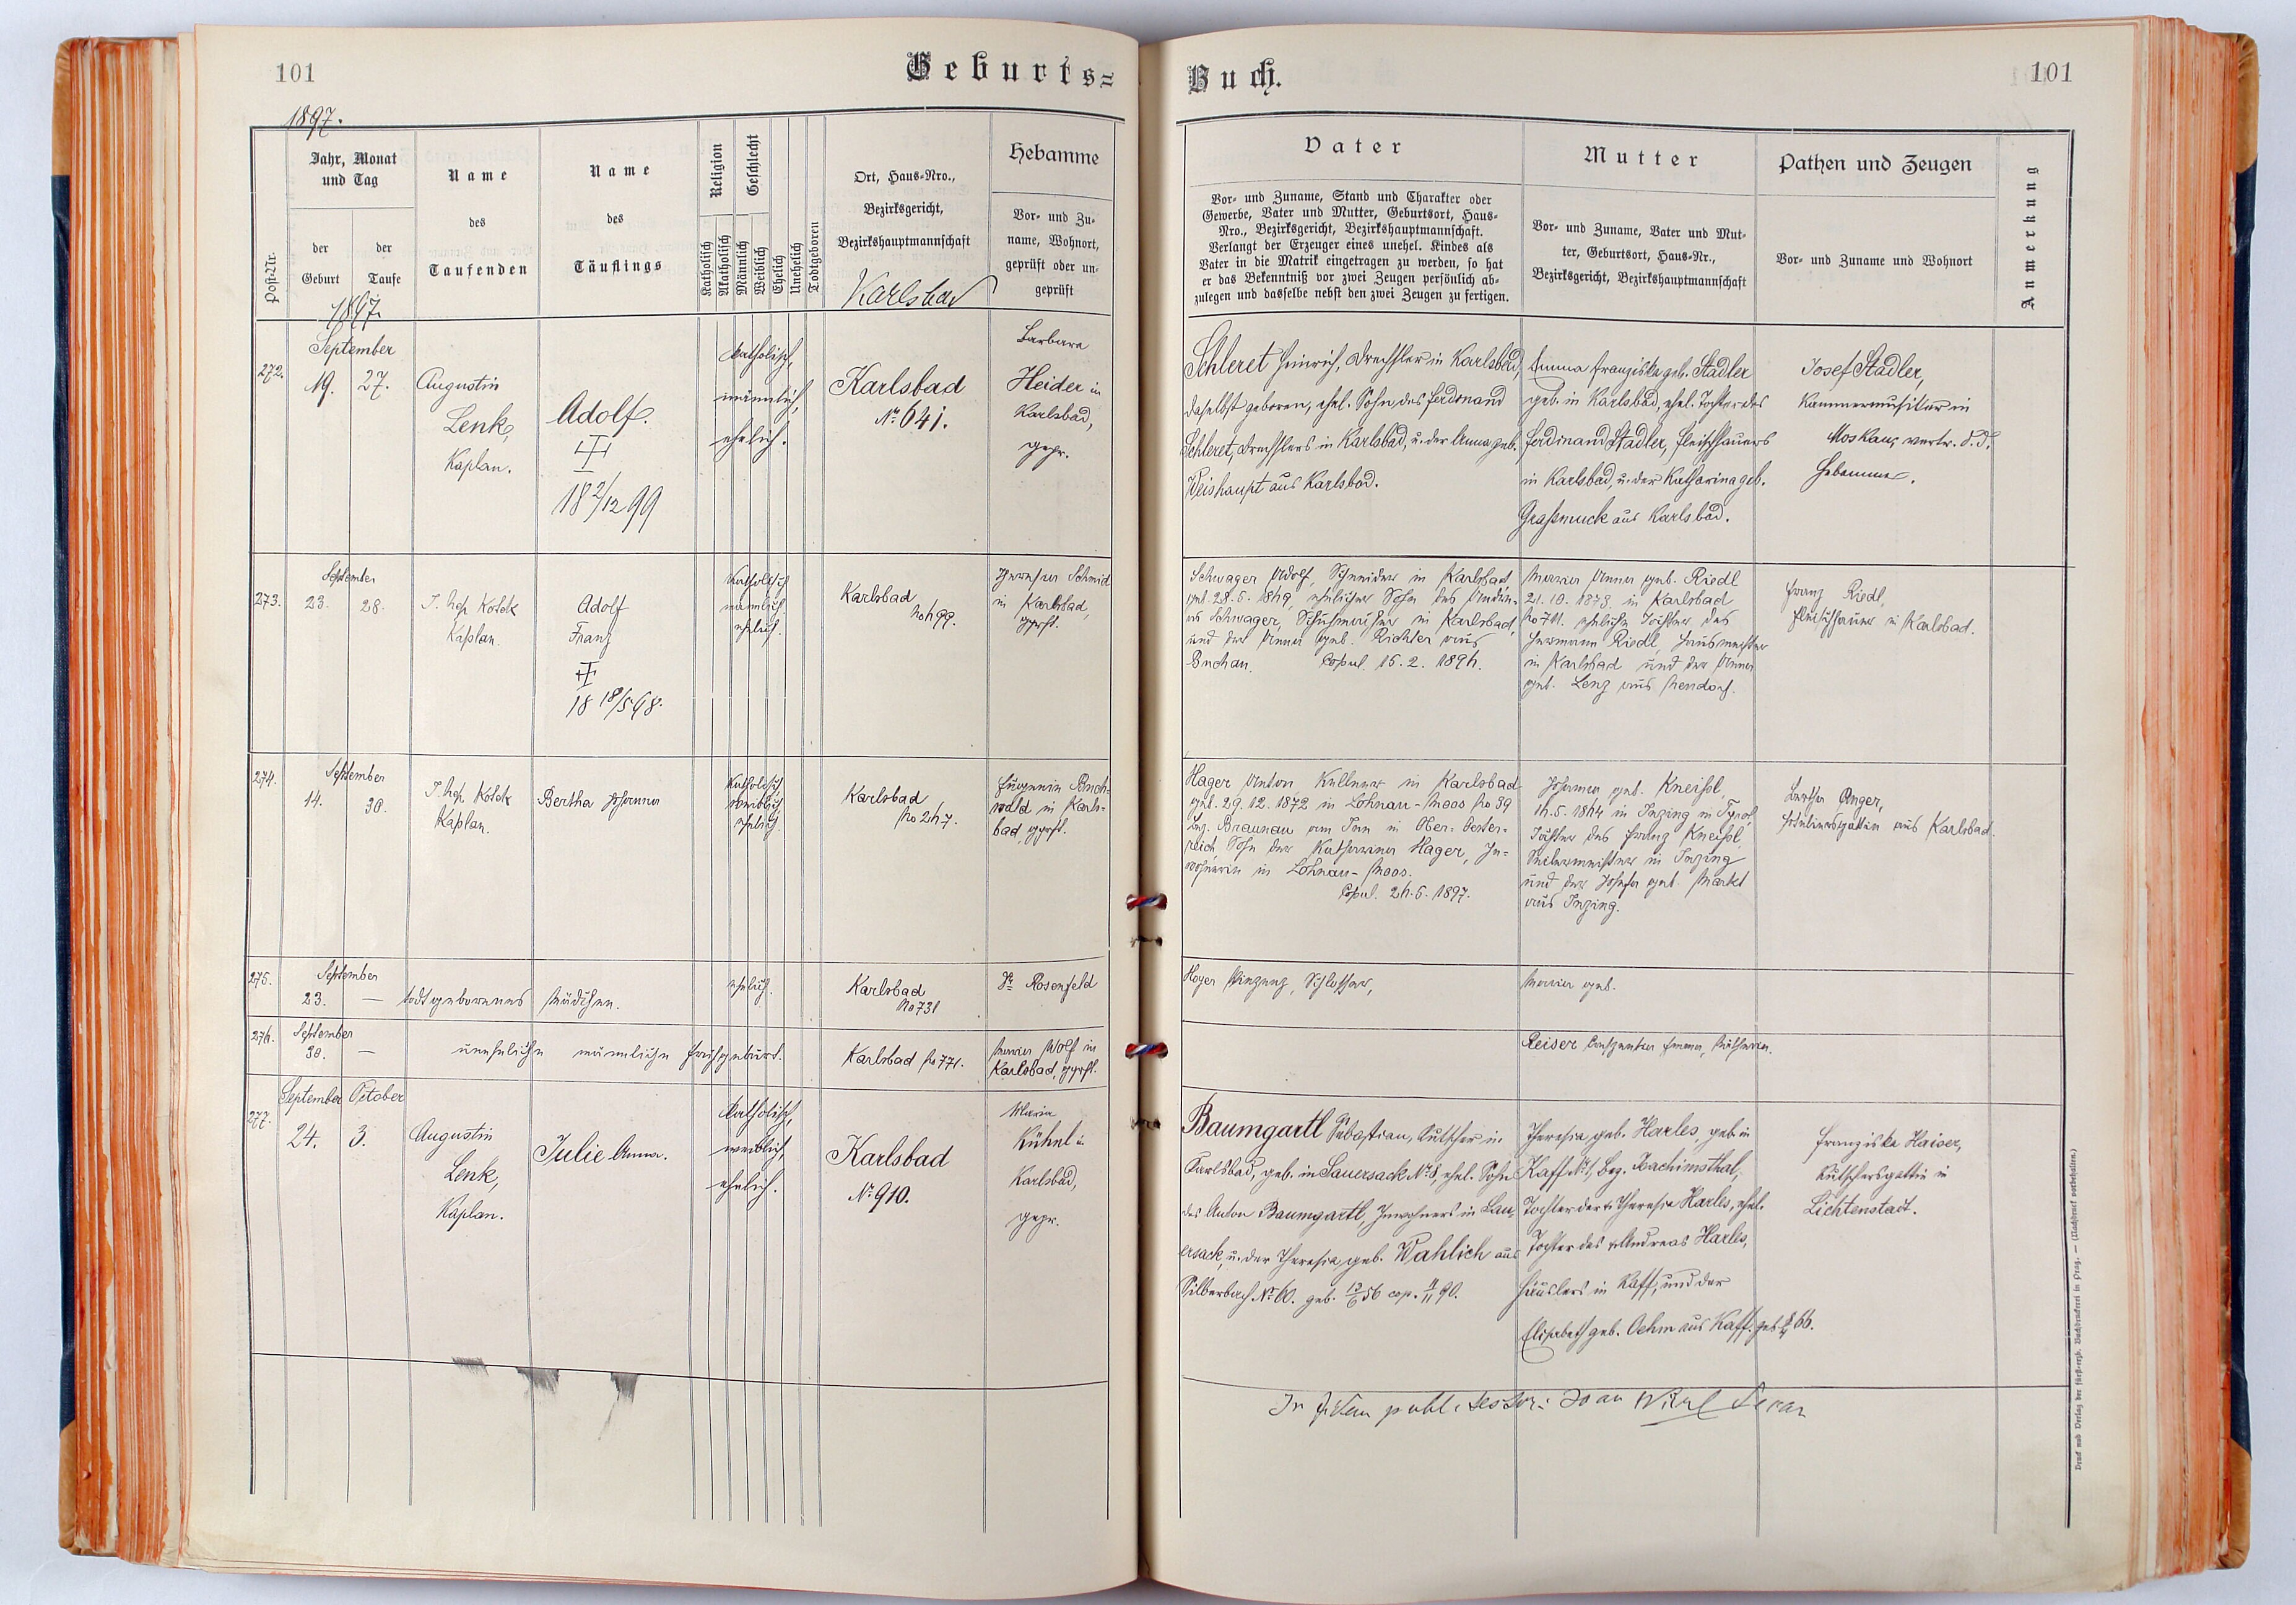 101
Geburts=
1897.
Post-Nr.
Jahr, Monat
und Tag
der
Geburt
der
Taufe
Name
des
Taufenden
Name
des
Täuflings
Religion
Geschlecht
Katholisch
Akatholisch
Männlich
Weiblich
Ehelich
Unehelich
Todtgeboren
Ort, Haus-Nro.,
Bezirksgericht,
Bezirkshauptmannschaft
Karlsbad
Hebamme
Vor- und Zu-
name, Wohnort,
geprüft oder un-
geprüft
1897.
272.
September
19.
27.
Augustin
Lenk,
Kaplan.
Adolf.
18 2/12 99
katholisch,
männlich,
ehelich.
Karlsbad
No 641.
Barbara
Heider in
Karlsbad,
gepr.
273.
September
23.
28.
Kaplan.
Adolf
Franz
18 18/5 98.
katholisch
männlich
ehelich.
Karlsbad
Schmid
in Karlsbad,
geprft.
274.
September
14.
30.
Kaplan.
Bertha Johanna
katholisch
weiblich
ehelich.
Karlsbad
Eugenie Buch-
wald in Karls-
bad, geprft.
275.
September
23.
—
todtgeborenes Mädchen.
ehelich.
Karlsbad
No 731
Dr Rosenfeld
276.
September
30.
—
uneheliche männliche Frühgeburt.
Karlsbad No 771.
Maria Wolf in
Karlsbad, geprft.
277.
September
October
24.
3.
Augustin
Lenk,
Kaplan.
Julie Anna.
katholisch,
weiblich,
ehelich.
Karlsbad
No 910.
Maria
Kühnl in
Karlsbad,
gepr.
Buch.
101
Vater
Vor- und Zuname, Stand und Charakter oder
Gewerbe, Vater und Mutter, Geburtsort, Haus-
Nro., Bezirksgericht, Bezirkshauptmannschaft.
Verlangt der Erzeuger eines unehel. Kindes als
Vater in die Matrik eingetragen zu werden, so hat
er das Bekenntniß vor zwei Zeugen persönlich ab-
zulegen und dasselbe nebst den zwei Zeugen zu fertigen.
Mutter
Vor- und Zuname, Vater und Mut-
ter, Geburtsort, Haus-Nr.,
Bezirksgericht, Bezirkshauptmannschaft
Pathen und Zeugen
Vor- und Zuname und Wohnort
Anmerkung
Schleret Heinrich, Drechsler in Karlsbad,
daselbst geboren, ehel. Sohn des Ferdinand
Schleret, Drechslers in Karlsbad, u. der Anna geb.
Weishaupt aus Karlsbad.
Emma Franziska geb. Stadler
geb. in Karlsbad, ehel. Tochter des
Ferdinand Stadler, Fleischhauers
in Karlsbad, u. der Katharina geb.
Graßmuck aus Karlsbad.
Josef Stadler,
Kammermusiker in
Moskau, vertr. d. d.
Hebamme.
Schwager Adolf, Schneider in Karlsbad
ehelicher Sohn des
Schwager, Schuhmacher in Karlsbad,
und der Anna geb. Richter aus
Buchau. Copul. 15. 2. 1896.
Maria Anna geb. Riedl
21. 10. 1873 in Karlsbad
eheliche Tochter des
Hermann Riedl, Hausmeister
in Karlsbad und der Anna
geb. Lenz aus
Franz Riedl,
Fleischhauer in Karlsbad.
Hager Anton, Kellner in Karlsbad
geb. 29. 12. 1872 in Lohnau-Moos No 39
Bez. Braunau am Inn in Ober-Oester-
reich Sohn der Katharina Hager, In-
wohnerin in Lohnau-Moos.
Copul. 26. 6. 1897.
Johanna geb. Kneißl,
in Inzing in Tyrol,
Tochter des Franz Kneißl,
Seilermeister in Inzing
und der Josefa geb. Markt
aus Inzing.
Bertha Anger,
aus Karlsbad.
Hoyer Vinzenz, Schlosser,
Maria geb.
Reiser Emma, Näherin.
Baumgartl Sebastian, Kutscher in
Karlsbad, geb. in Sauersack No 8, ehel. Sohn
des Anton Baumgartl, Inwohners in Sau-
ersack, u. der Theresia geb. Wahlich aus
Silberbach No 60. geb. 12/6 56 cop. 11/11 90.
Theresia geb. Harles, geb. in
Kaff No 1, Bez. Joachimsthal,
Tochter der Theresia Harles, ehel.
Tochter des Andreas Harles,
Häuslers in Kaff, und der
Elisabeth geb. Oehm aus Kaff. geb. 66.
Franziska Haiser,
Kutschersgattin in
Lichtenstadt.
Druck und Verlag der fürst-erzb. Buchdruckerei in Prag. — (Nachdruck vorbehalten.)